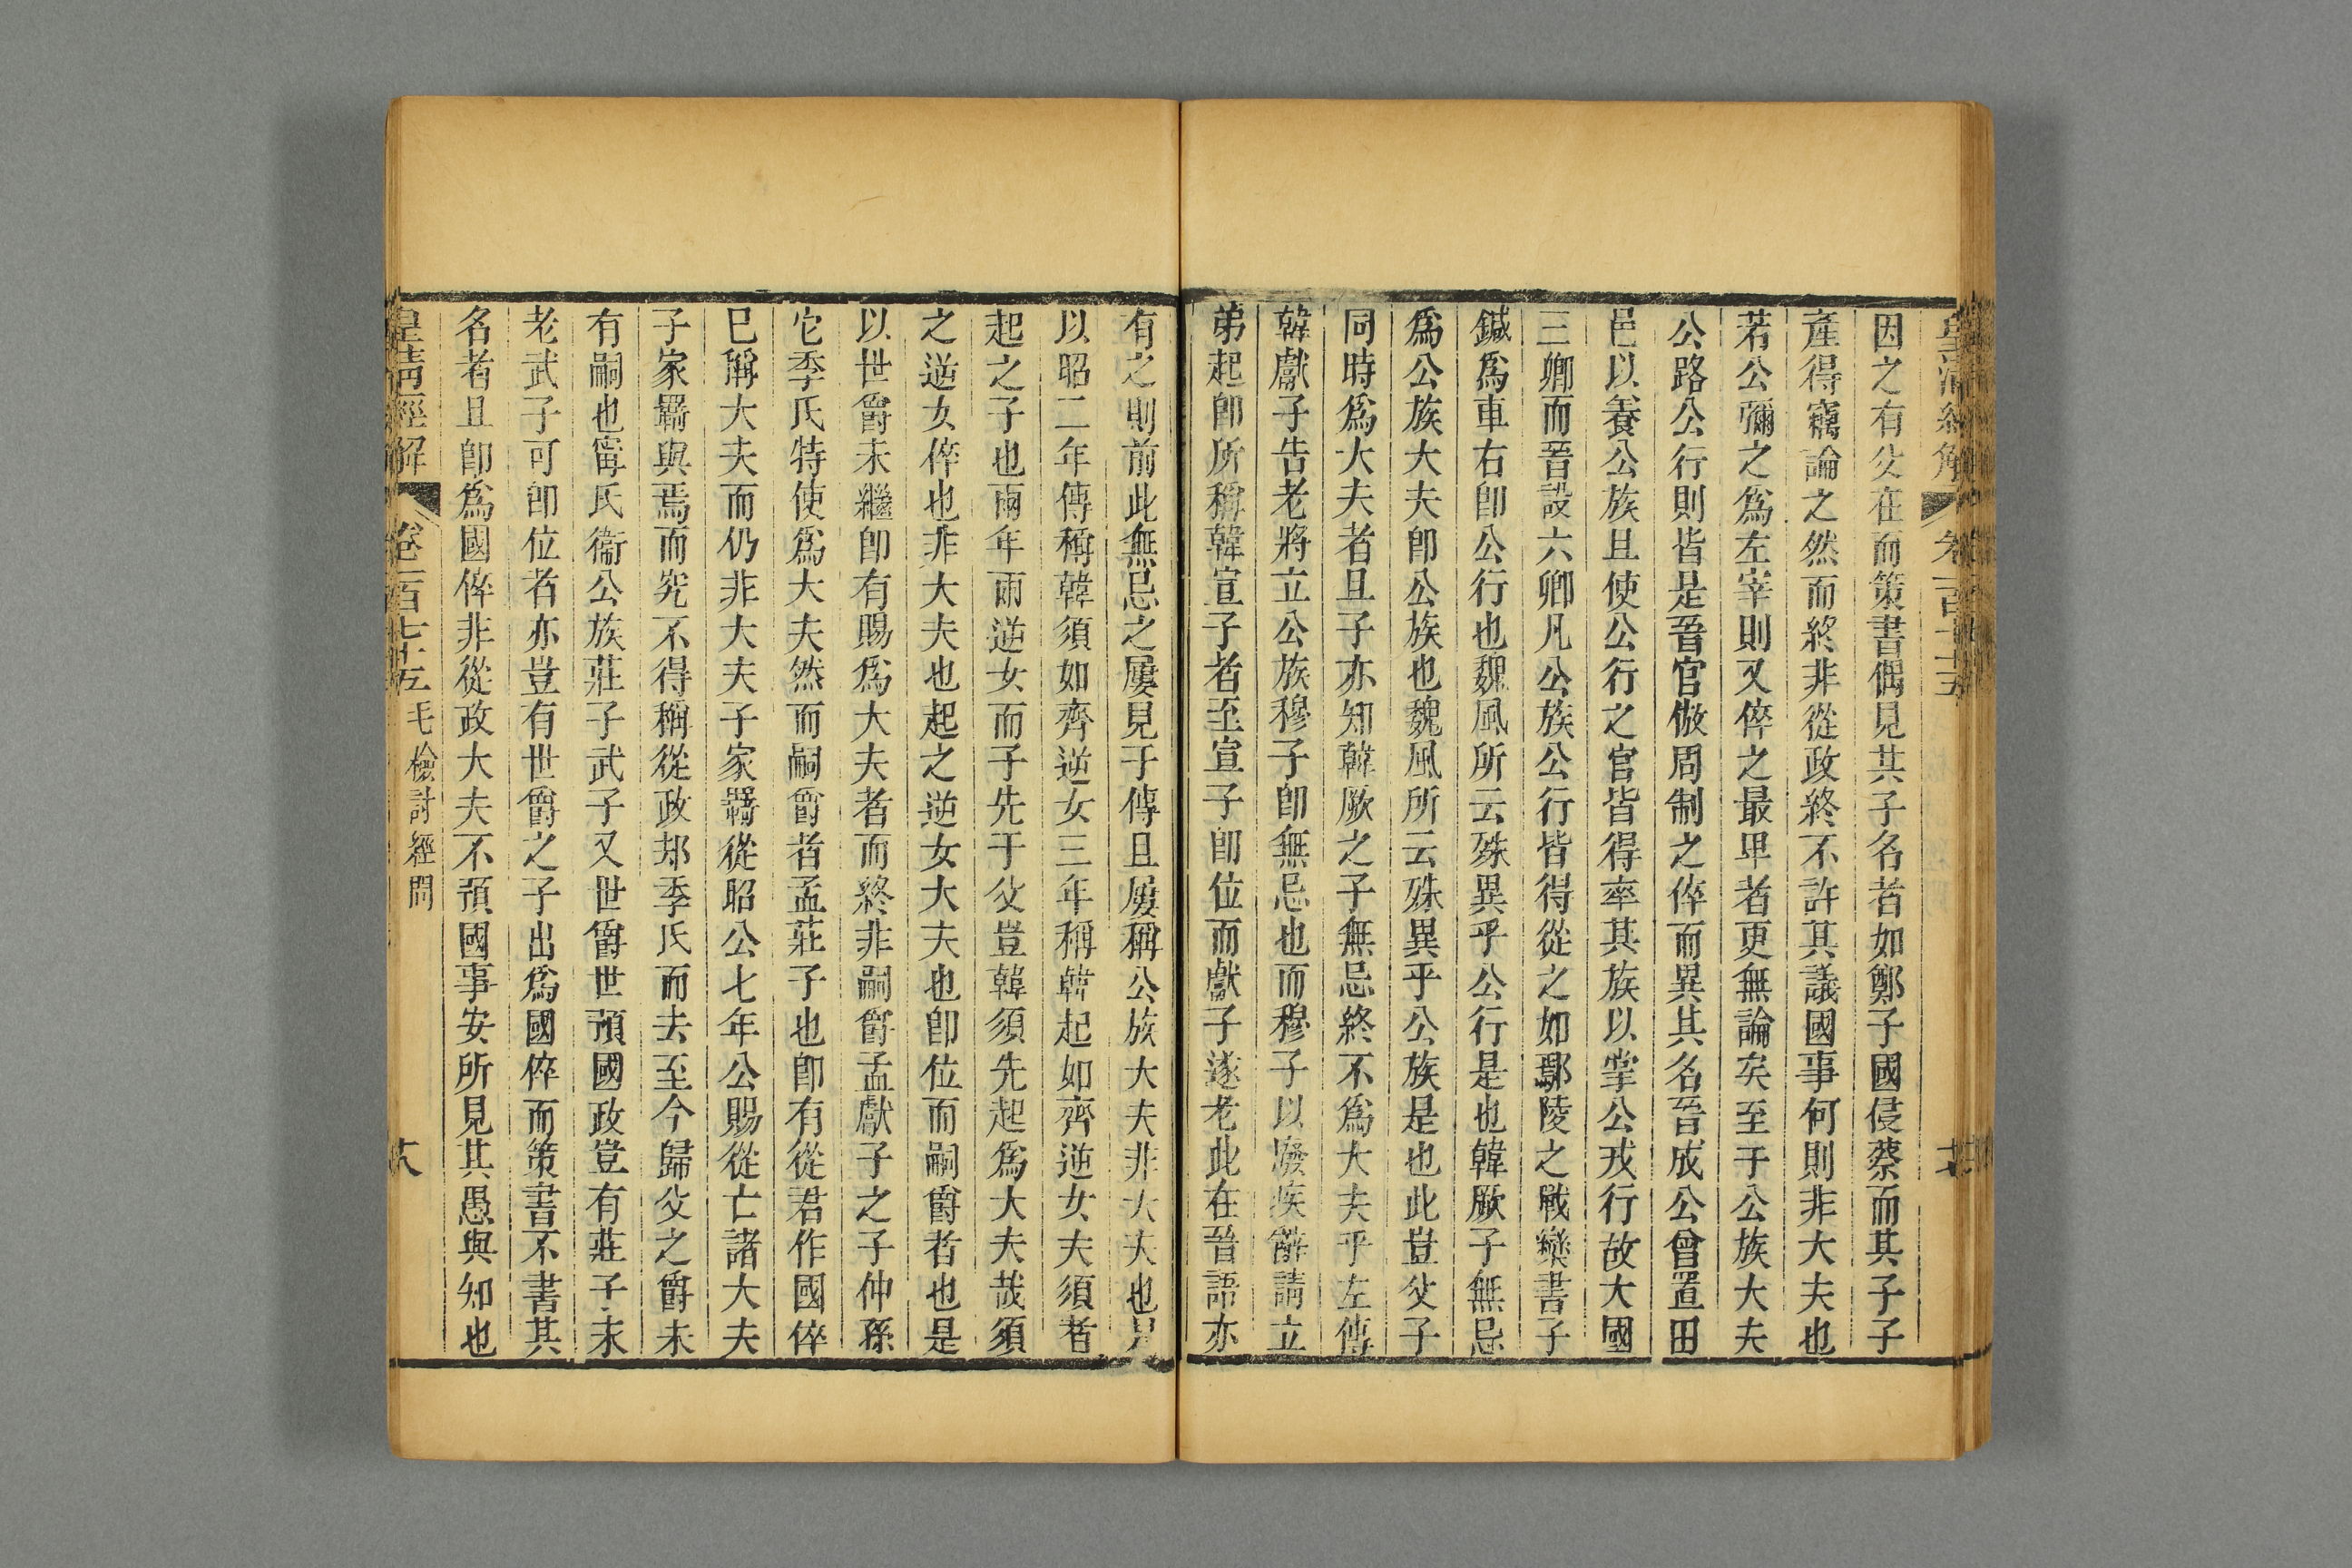 皇清經解 卷一百七十五
因之有父在而策書偶見其子名者如鄭子國侵蔡而其子子
產得竊論之然而終非從政終不許其議國事何則非大夫也
若公彌之爲左宰則又倅之最卑者更無論矣至于公族大夫
公路公行則皆是晉官倣周制之倅而異其名晉成公曾置田
邑以養公族且使公行之官皆得率其族以掌公戎行故大國
三卿而晉設六卿凡公族公行皆得從之如鄢陵之戰欒書子
鍼爲車右卽公行也魏風所云殊異乎公行是也韓厥子無忌
爲公族大夫卽公族也魏風所云殊異乎公族是也此豈父子
同時爲大夫者且子亦知韓厥之子無忌終不爲大夫乎左傳
韓獻子告老將立公族穆子卽無忌也而穆子以廢疾辭請立
弟起卽所稱韓宣子者至宣子卽位而獻子遂老此在晉語亦
有之則前此無忌之屢見于傳且屢稱公族大夫非大夫也
以昭二年傳稱韓須如齊逆女三年稱韓起如齊逆女夫須者
起之子也兩年兩逆女而子先于父豈韓須先起爲大夫哉須
之逆女倅也非大夫也起之逆女大夫也卽位而嗣爵者也是
以世爵未繼卽有賜爲大夫者而終非嗣爵孟獻子之子仲孫
它季氏特使爲大夫然而嗣爵者孟莊子也卽有從君作國倅
已稱大夫而仍非大夫子家羈從昭公七年公賜從亡諸大夫
子家羈與焉而究不得稱從政邦季氏而去至今歸父之爵未
有嗣也甯氏衞公族莊子武子又世爵世預國政豈有莊子未
老武子可卽位者亦豈有世爵之子出爲國倅而策書不書其
名者且卽爲國倅非從政大夫不預國事安所見其愚與知也
皇清經解 卷一百七十五 毛檢討經問